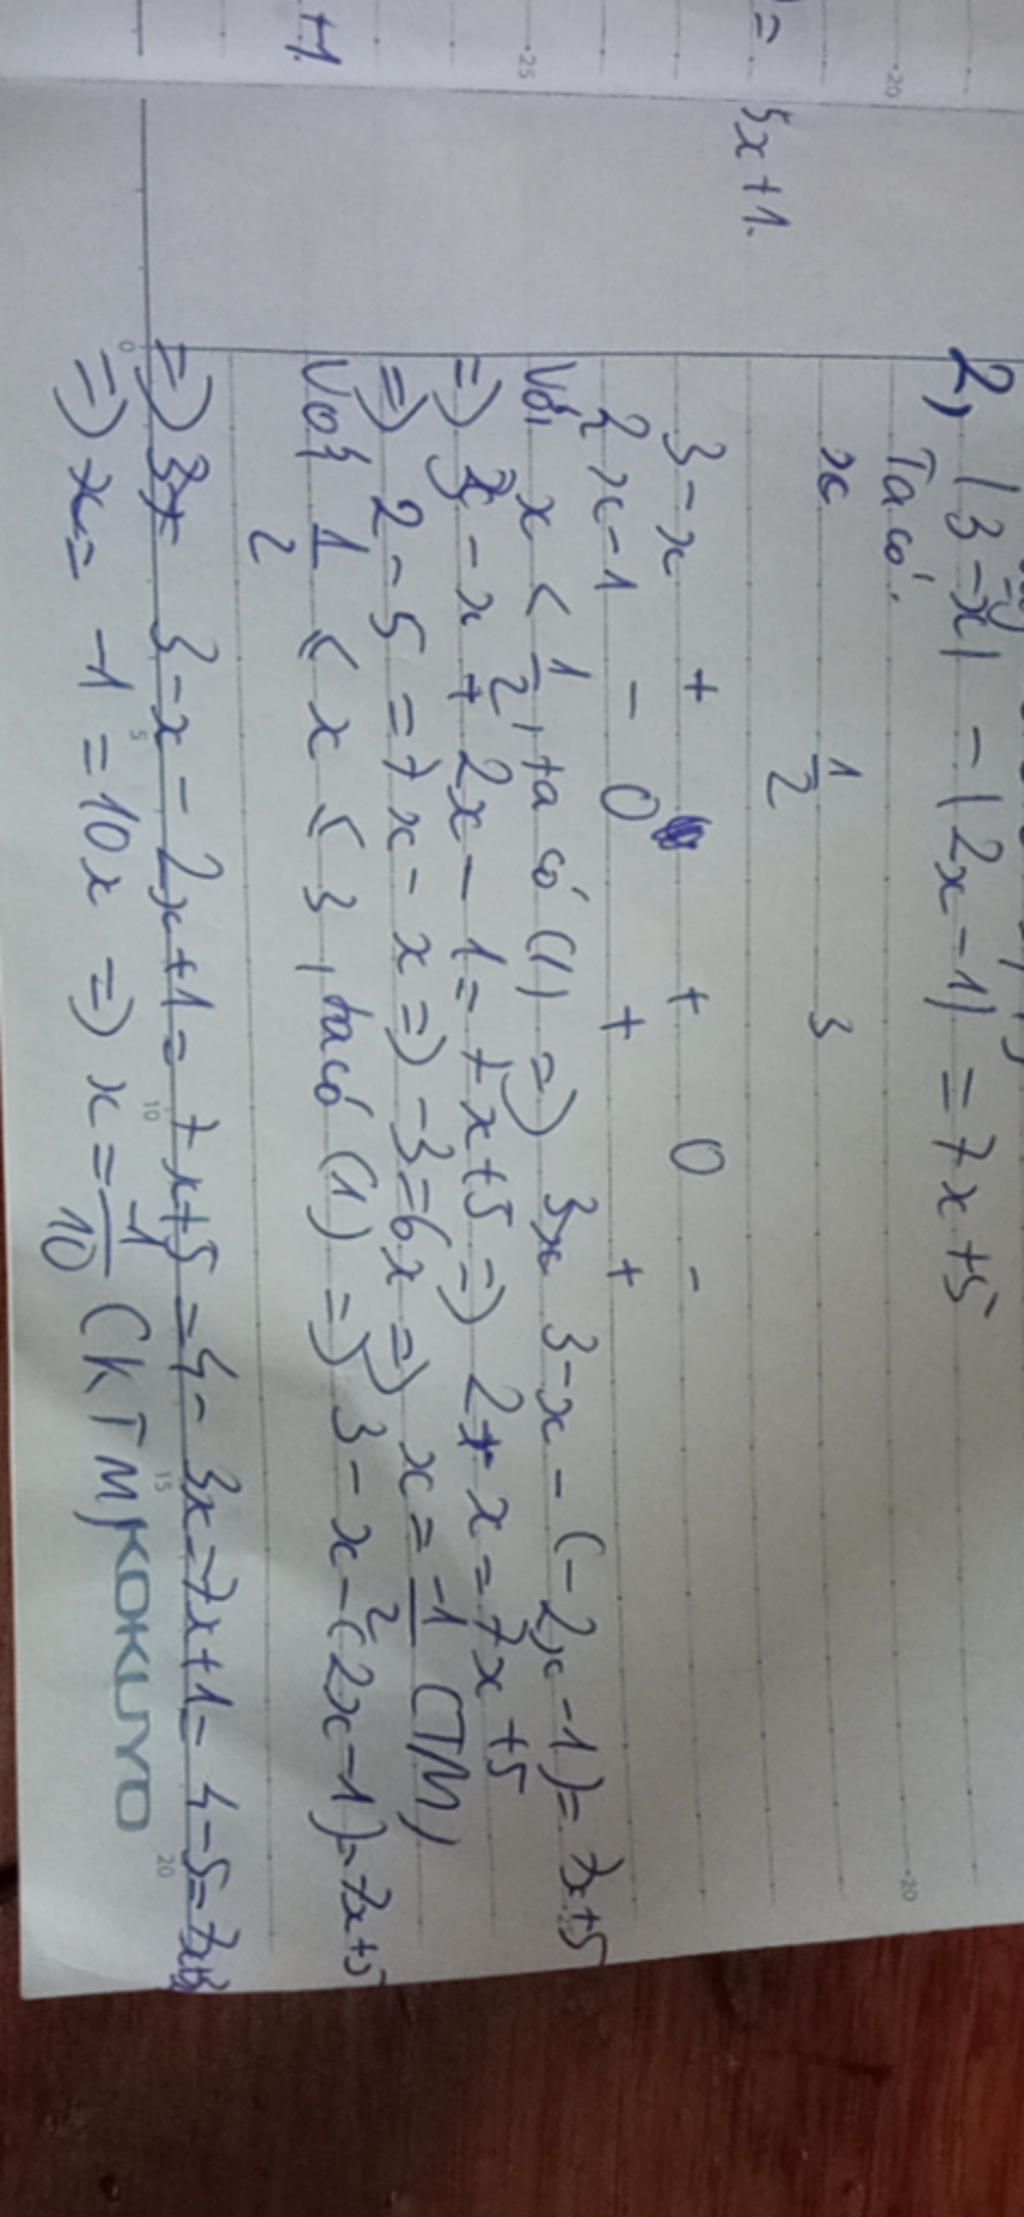 5x+1.
+1.
2, |3-x| - |2x-1| = 7x+5
Ta có:
x 1/2 3
3-x + + 0 -
2x-1 - 0 + +
Với x < 1/2, ta có (1) => 3-x-(-2x-1)=7x+5
=> 3-x+2x-1=7x+5 => 2+x=7x+5
=> 2-5=7x-x => -3=6x => x=-1/2 (TM)
Với 1/2 ≤ x ≤ 3, ta có (1) => 3-x-(2x-1)=7x+5
=> 3-x-2x+1=7x+5=4-3x=7x+1=4-5=7x+3
=> x= -1=10x => x=-1/10 (KTM)
KOKUYO
-25
-20
-20
0
5
10
15
20